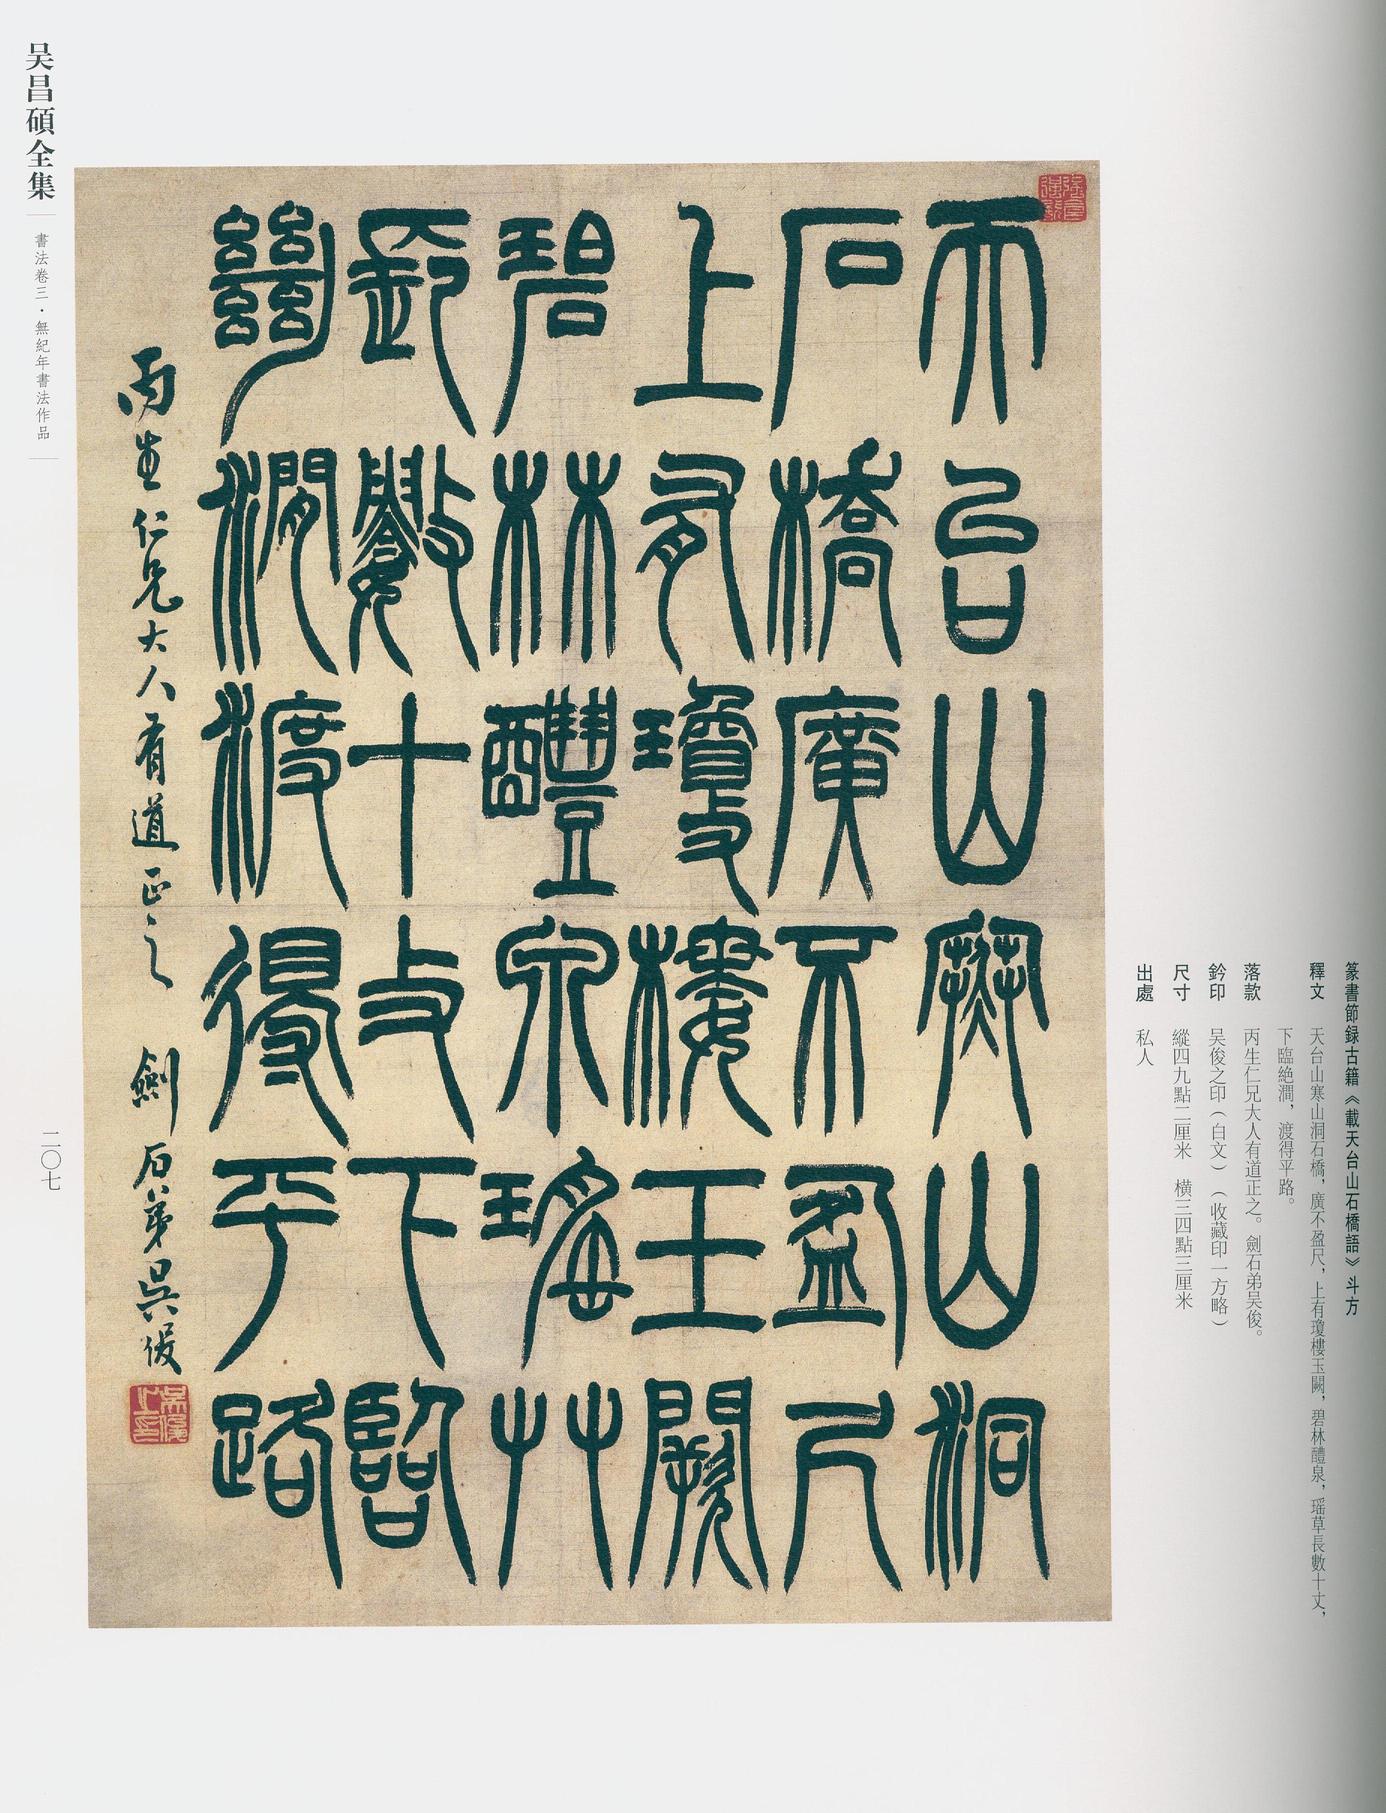 篆書節録古籍《載天台山石橋語》斗方
釋文 天台山寒山洞石橋，廣不盈尺，上有瓊樓玉闕，碧林醴泉，瑶草長數十丈，
下臨絶澗，渡得平路。
落款 丙生仁兄大人有道正之。劍石弟吴俊。
鈐印 吴俊之印（白文）（收藏印一方略）
尺寸 縱四九點二厘米 横三四點三厘米
出處 私人
天台山寒山洞
石橋廣不盈尺
上有瓊樓玉闕
碧林醴泉瑤艸
長數十丈下臨
絕澗渡得平路
丙生仁兄大人有道正之 劍石弟吳俊
吳俊之印
吴昌碩全集
書法卷三·無紀年書法作品
二〇七